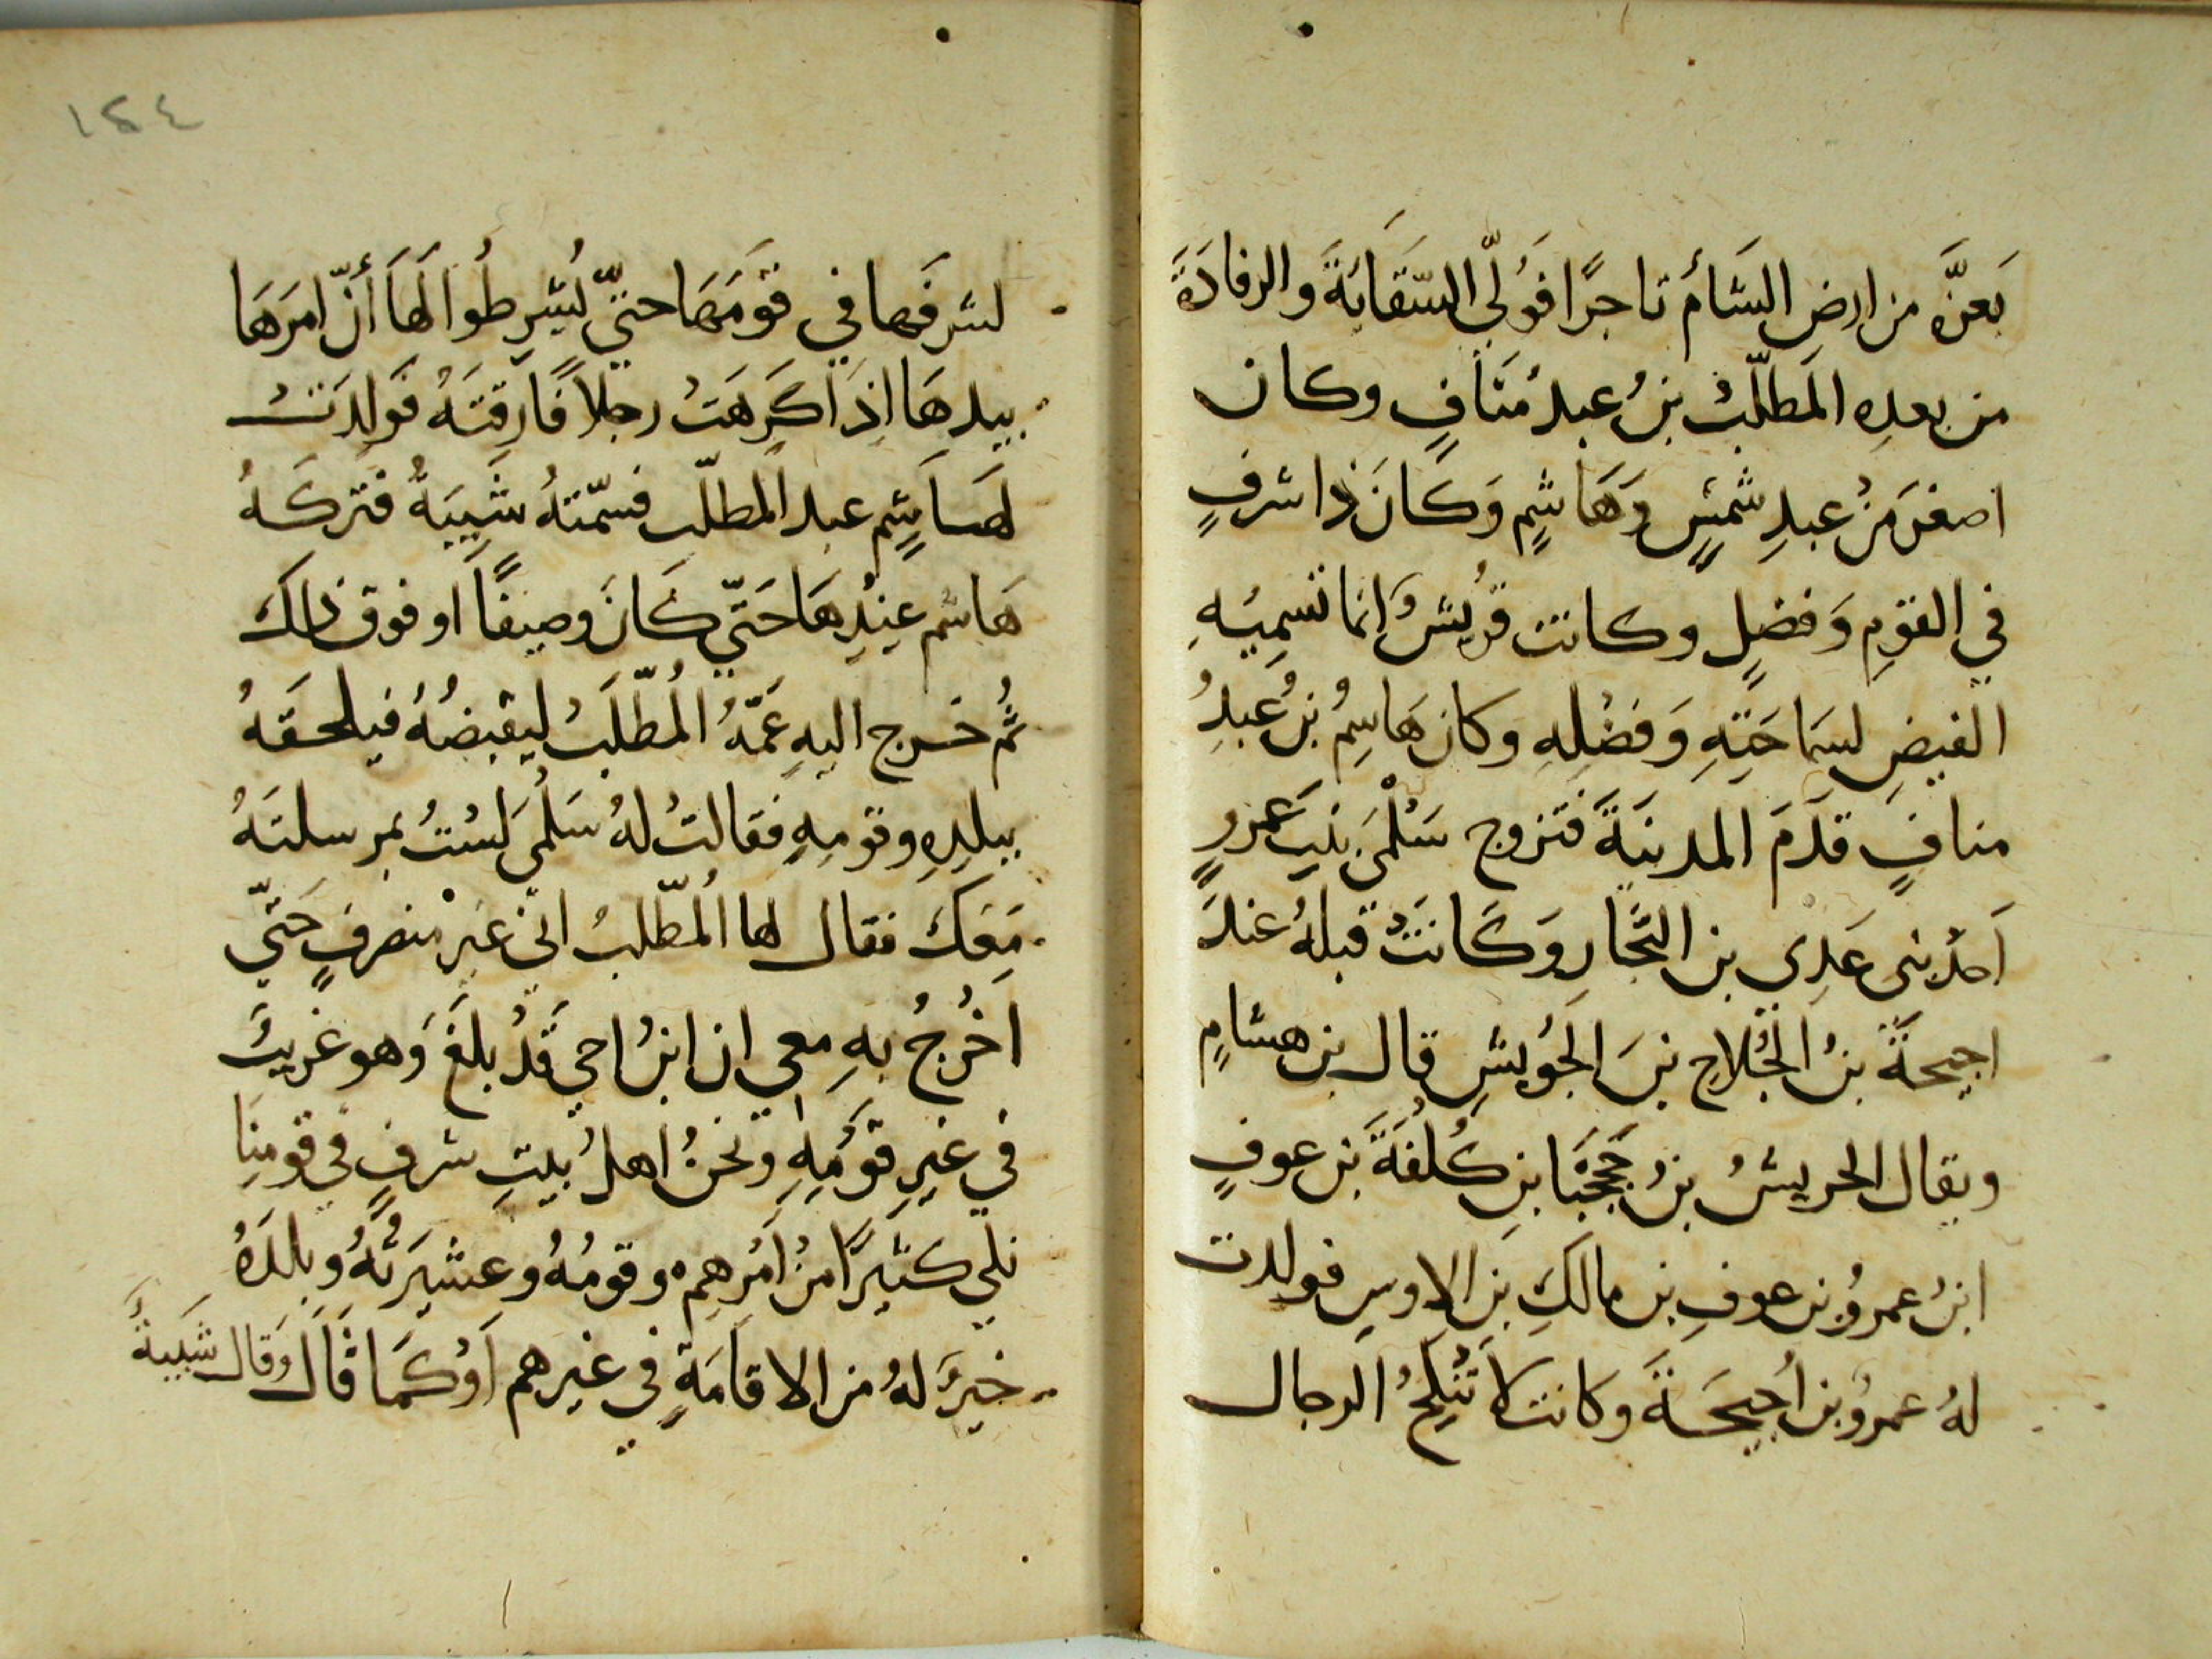 بَعزَّه من ارض الشأم تاجرًا فَوُلّي السّقَايَةَ والرفادَةَ
من بعدِهِ المَطلّبُ بنُ عبد مَنَافٍ وكان
اصغرَ مَنْ عبدِ شمسٍ وَهَاشمٍ وَكَانَ ذا شرفٍ
في القومِ وَفضلٍ وكانت قُريشٌ انما تسميهِ
الفيضِ لسَمَاحَتِهِ وَفَضْلِهِ وكان هَاشِمُ بنُ عَبدُ
منافٍ قَدَمَ المدينَةَ فَتزوج سَلْمَىَ بنتِ عَمرٍو
اَحدُ بنى عَدِي بن النَّجّارِ وَكَانَتْ قبلهُ عندَ
اجيحَةَ بنُ الجُلَاحِ بنَ الجُوَيشِ قال بن هشامٍ
ويقال الحريشُ بنُ جَحجَبَا بنِ كُلفَةَ بن عوفٍ
ابنُ عمرُو بن عوفِ بن مالكِ بنِ الاوسِ فولدت
لهُ عمرُو بن اُجيحَةَ وكانت لا تَنكِحُ الرجال
١٤٤
لشرفَها في قَومَهَا حتيّ يُشرِطُوا لَهاَ أنّ امرَهَا
بيدِهَا اِذَا كَرِهَتُ رجلاً فَارِقتَهُ فَوَلدَتْ
لهَاشِمٍ عبد المطلّب فسّمتهُ شَيبَةُ فتركَهُ
هَاشم عِنْدِهَا حَتّي كَانَ وصيفًا او فوق ذلكَ
ثُمُ خرج اليهِ عَمّهُ المُطّلَبُ ليقبضُهُ فيلحقَهُ
ببلدِهِ وقومِهِ فقالتُ لهُ سَلْمىَ لَسْتُ بمرسلتَهُ
مَعَكَ فقال لها المُطّلبُ اني غير منصرفٍ حَتّي
اَخرُجُ بهِ معي ان ابنُ اخي قَدْ بلغَ وَهو غريبُ
في غيرِ قَومِهِ ونحنُ اهلُ بيتِ شرفٍ في قومِنَا
نلي كثيرًا منُ اَمْرِهِم وقومُهُ وعشيرَتُهُ وبلدَهُ
خيرَ لهُ من الاقامَةٍ في غيرهم اَوْكمَا قَالَ وَقال شَيبَةُ